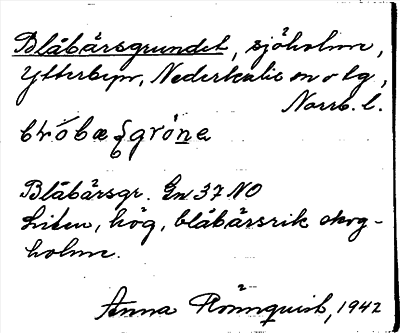 Blåbärsgrundet, sjöholme,
Ytterbyn, Nederkalix sn o tg,
Norrb. l.
Blåbärsgr. Gw 37 NO
Liten, hög, blåbärsrik skog-
holme.
Anna Rönnquist, 1942